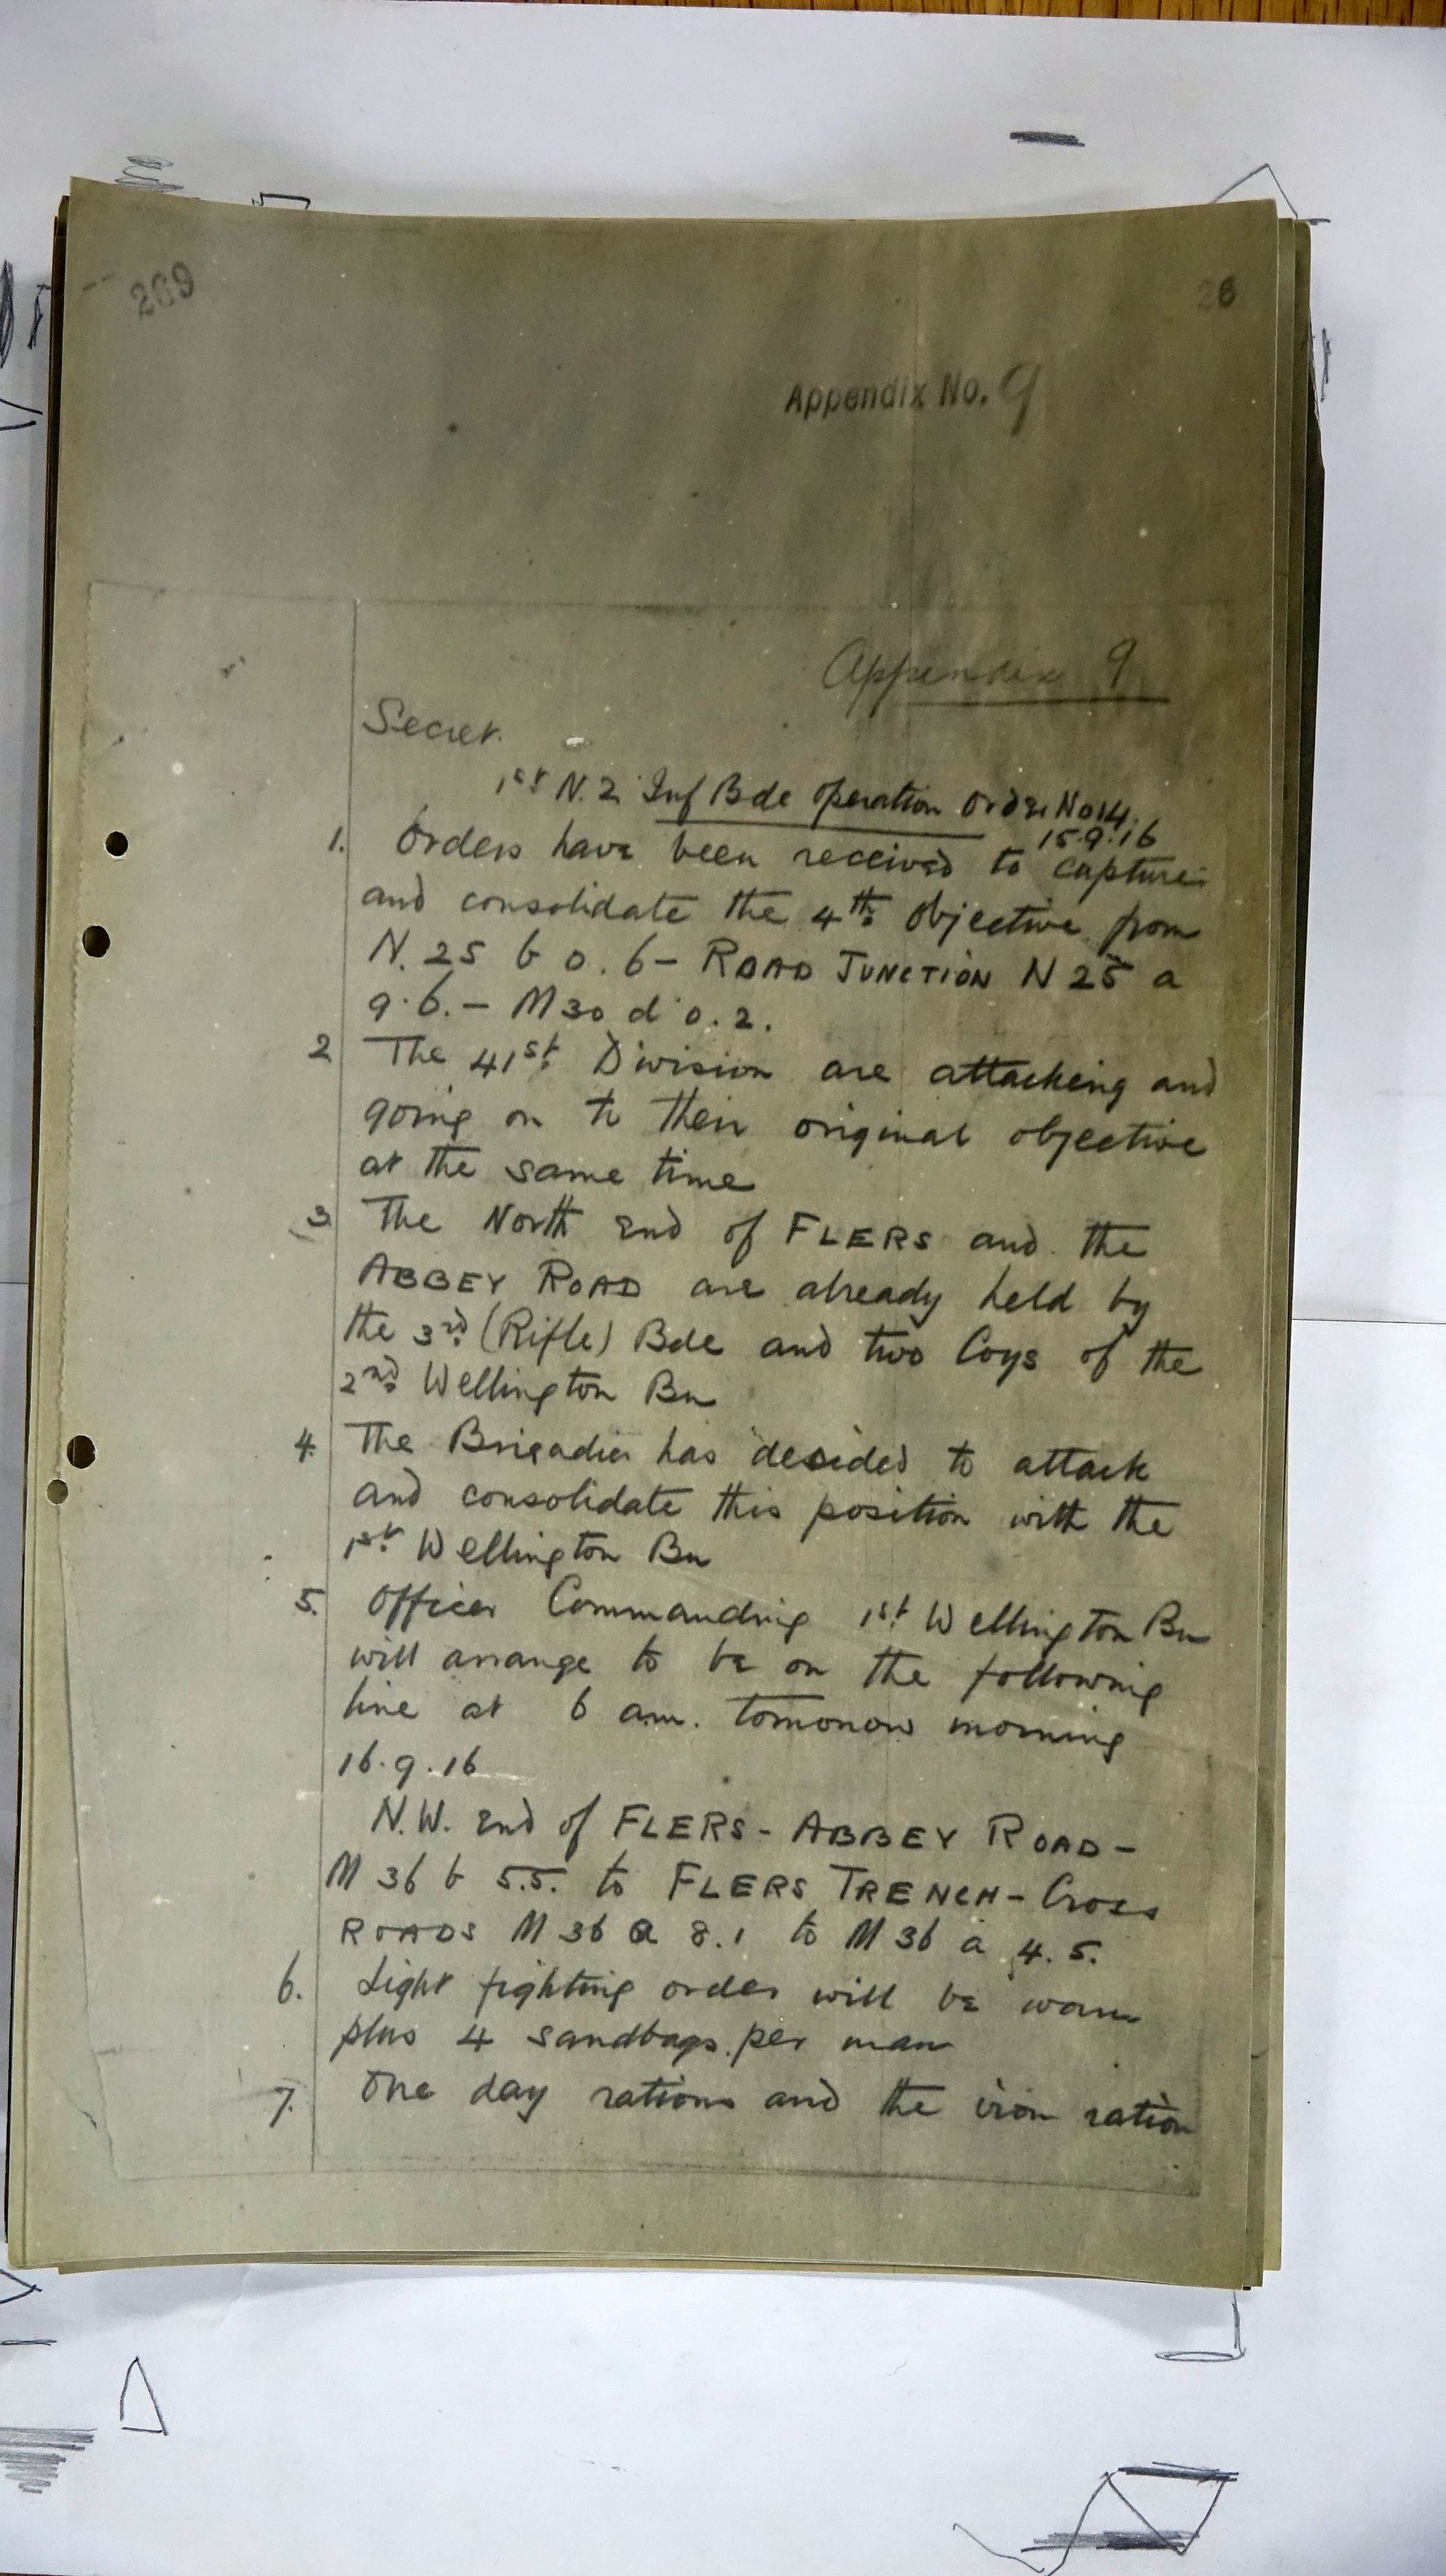 269
26
Appendix No. 9
Appendix 9
Secret.
1st N.Z. Inf Bde Operation Order No 14.
15.9.16
1. Orders have been received to capture
and consolidate the 4th objective from
N. 25 b 0.6 – ROAD JUNCTION N 25 a
9.6. – M 30 d 0.2.
2 The 41st Division are attacking and
going on to their original objective
at the same time
3 The North End of FLERS and the
ABBEY ROAD are already held by
the 3rd (Rifle) Bde and two Coys of the
2nd Wellington Bn
4. The Brigadier has decided to attack
and consolidate this position with the
1st Wellington Bn
5. Officer Commanding 1st Wellington Bn
will arrange to be on the following
line at 6 am. tomorrow morning
16.9.16
N.W. End of FLERS - ABBEY ROAD -
M 36 b 5.5. to FLERS TRENCH - Cross
ROADS M 36 a 8.1 to M 36 a 4.5.
6. Light fighting order will be worn
plus 4 sandbags per man
7. One day rations and the iron ration